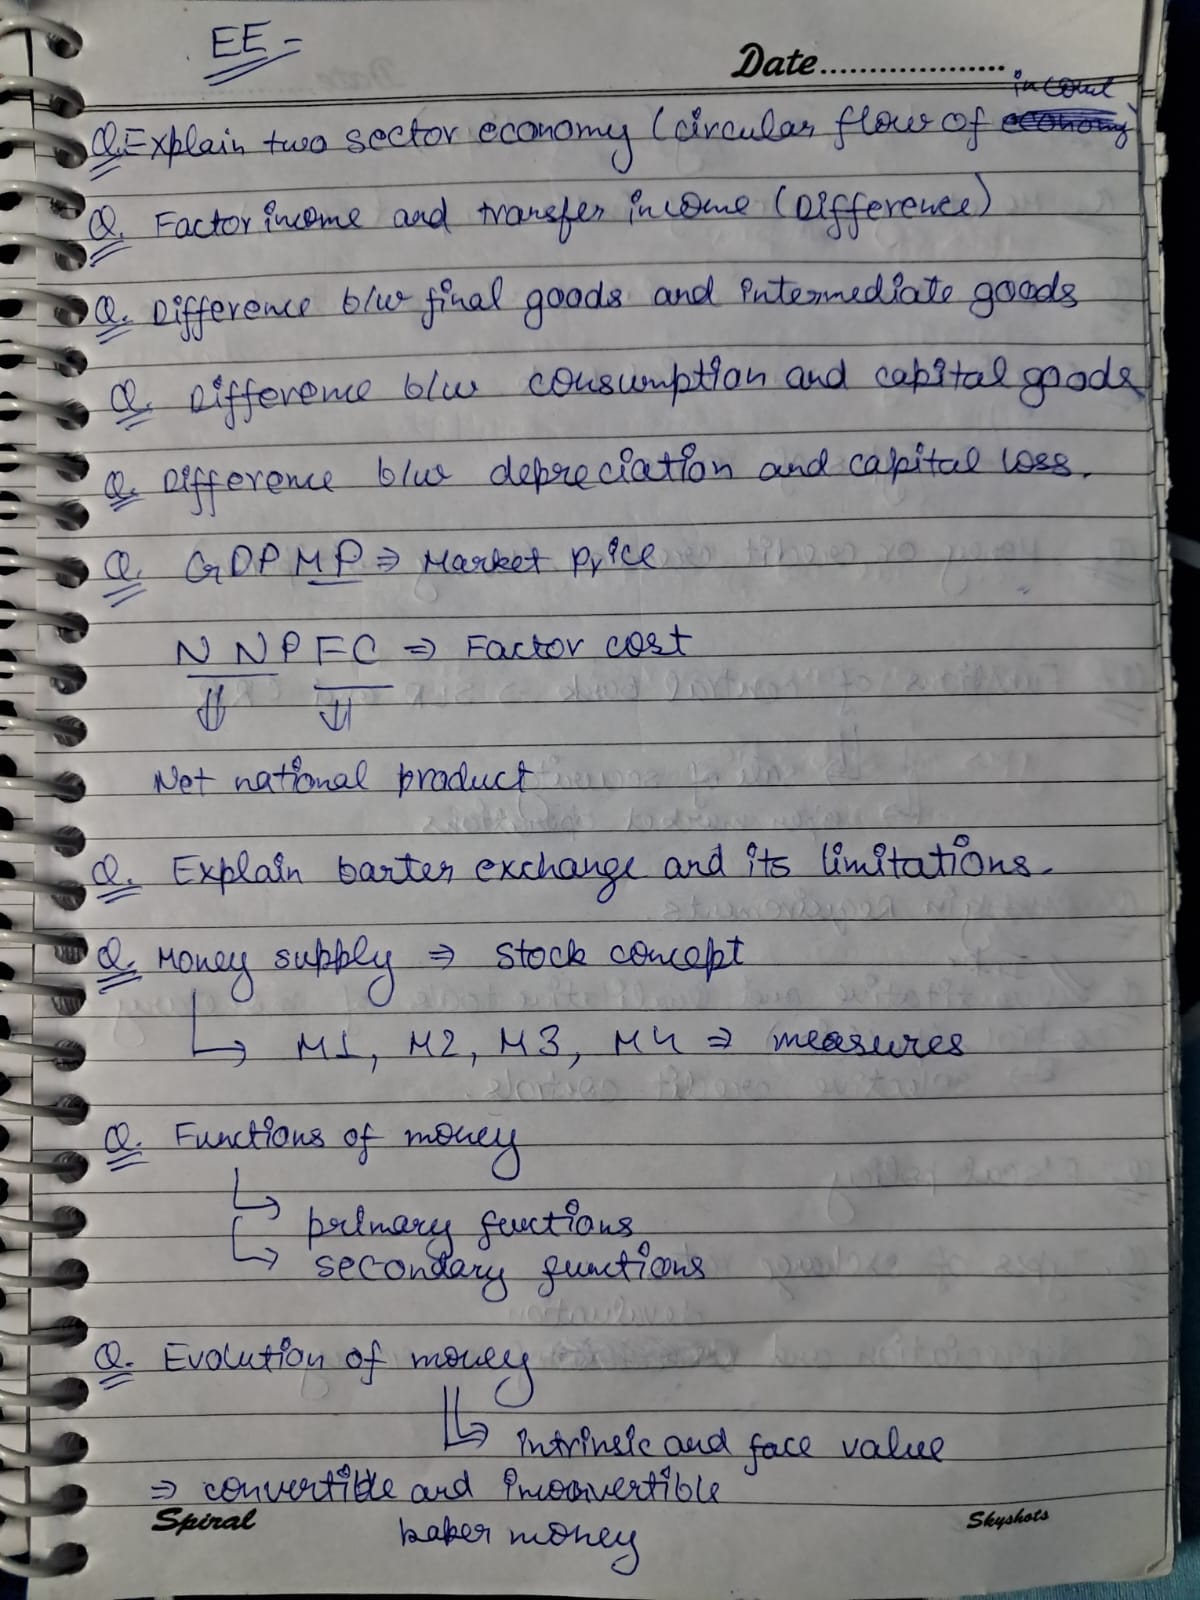 EE -
Date....................
income
Q. Explain two sector economy (circular flow of economy)
Q. Factor income and transfer income (Difference)
Q. Difference b/w final goods and intermediate goods
Q. Difference b/w consumption and capital goods
Q. Difference b/w depreciation and capital loss.
Q. GDP MP ⇒ Market Price
NNP FC ⇒ Factor cost
⇓ ⇓
Net national product
Q. Explain barter exchange and its limitations.
Q. Money supply ⇒ stock concept
↳ M1, M2, M3, M4 ⇒ measures
Q. Functions of money
↳ primary fuctions
↳ secondary functions
Q. Evolution of money
↳ intrinsic and face value
⇒ convertible and inconvertible
Spiral
Skyshots
paper money